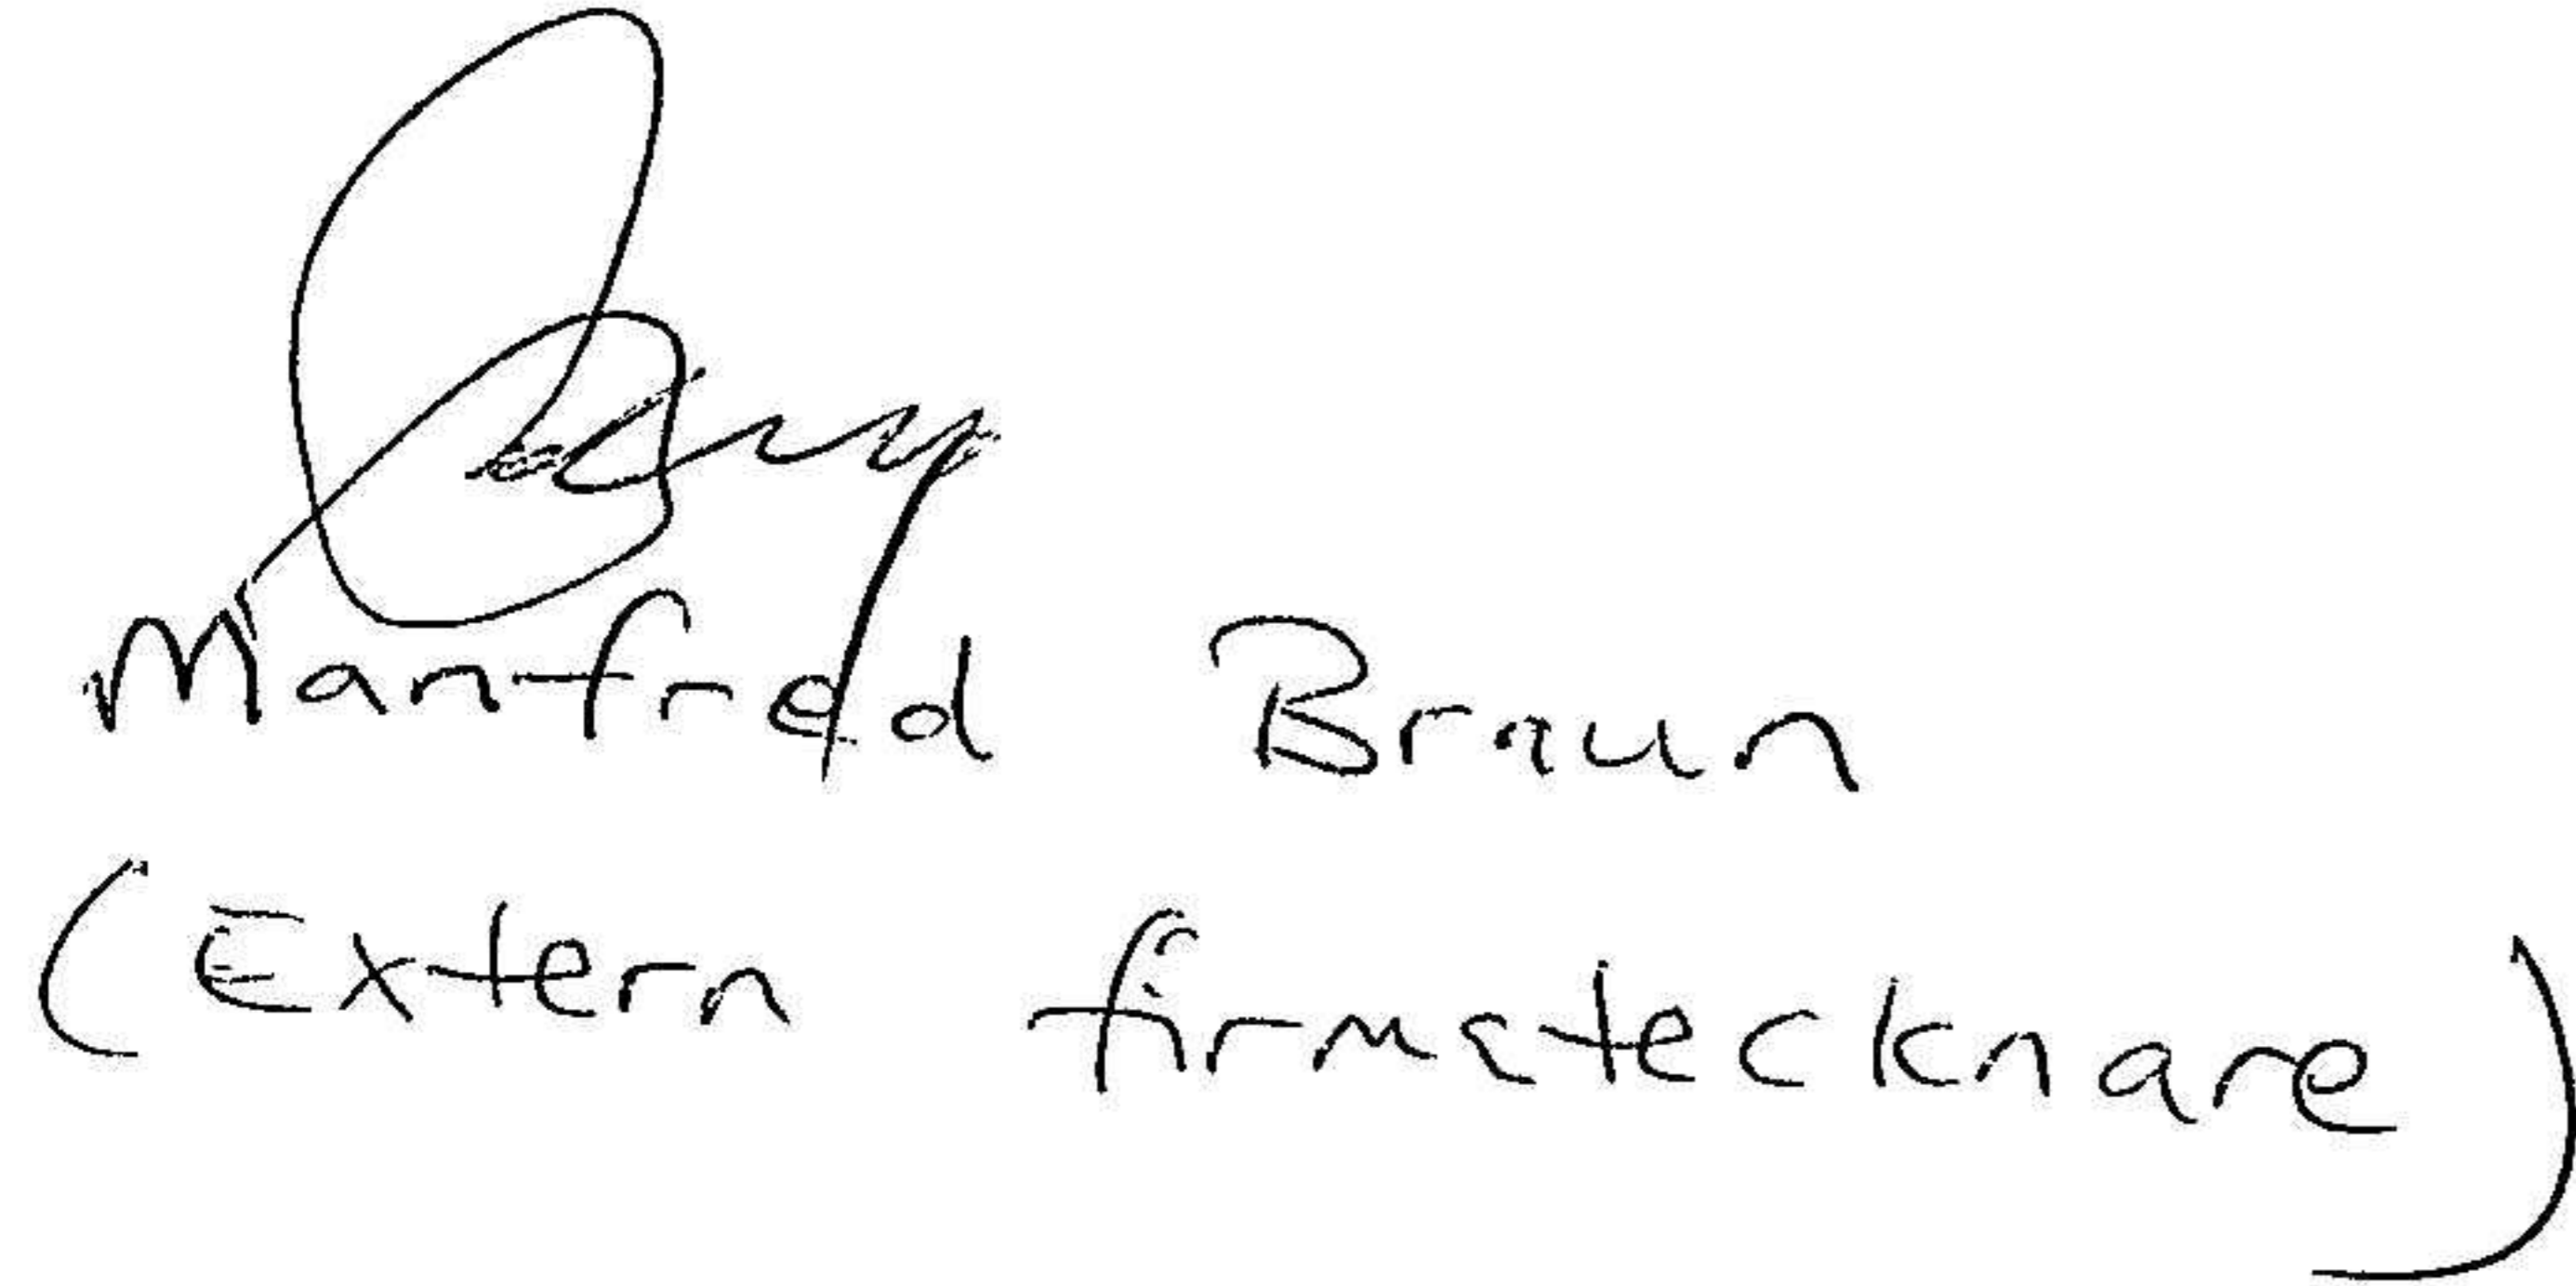 Manfred Braun
(Extern firmatecknare)